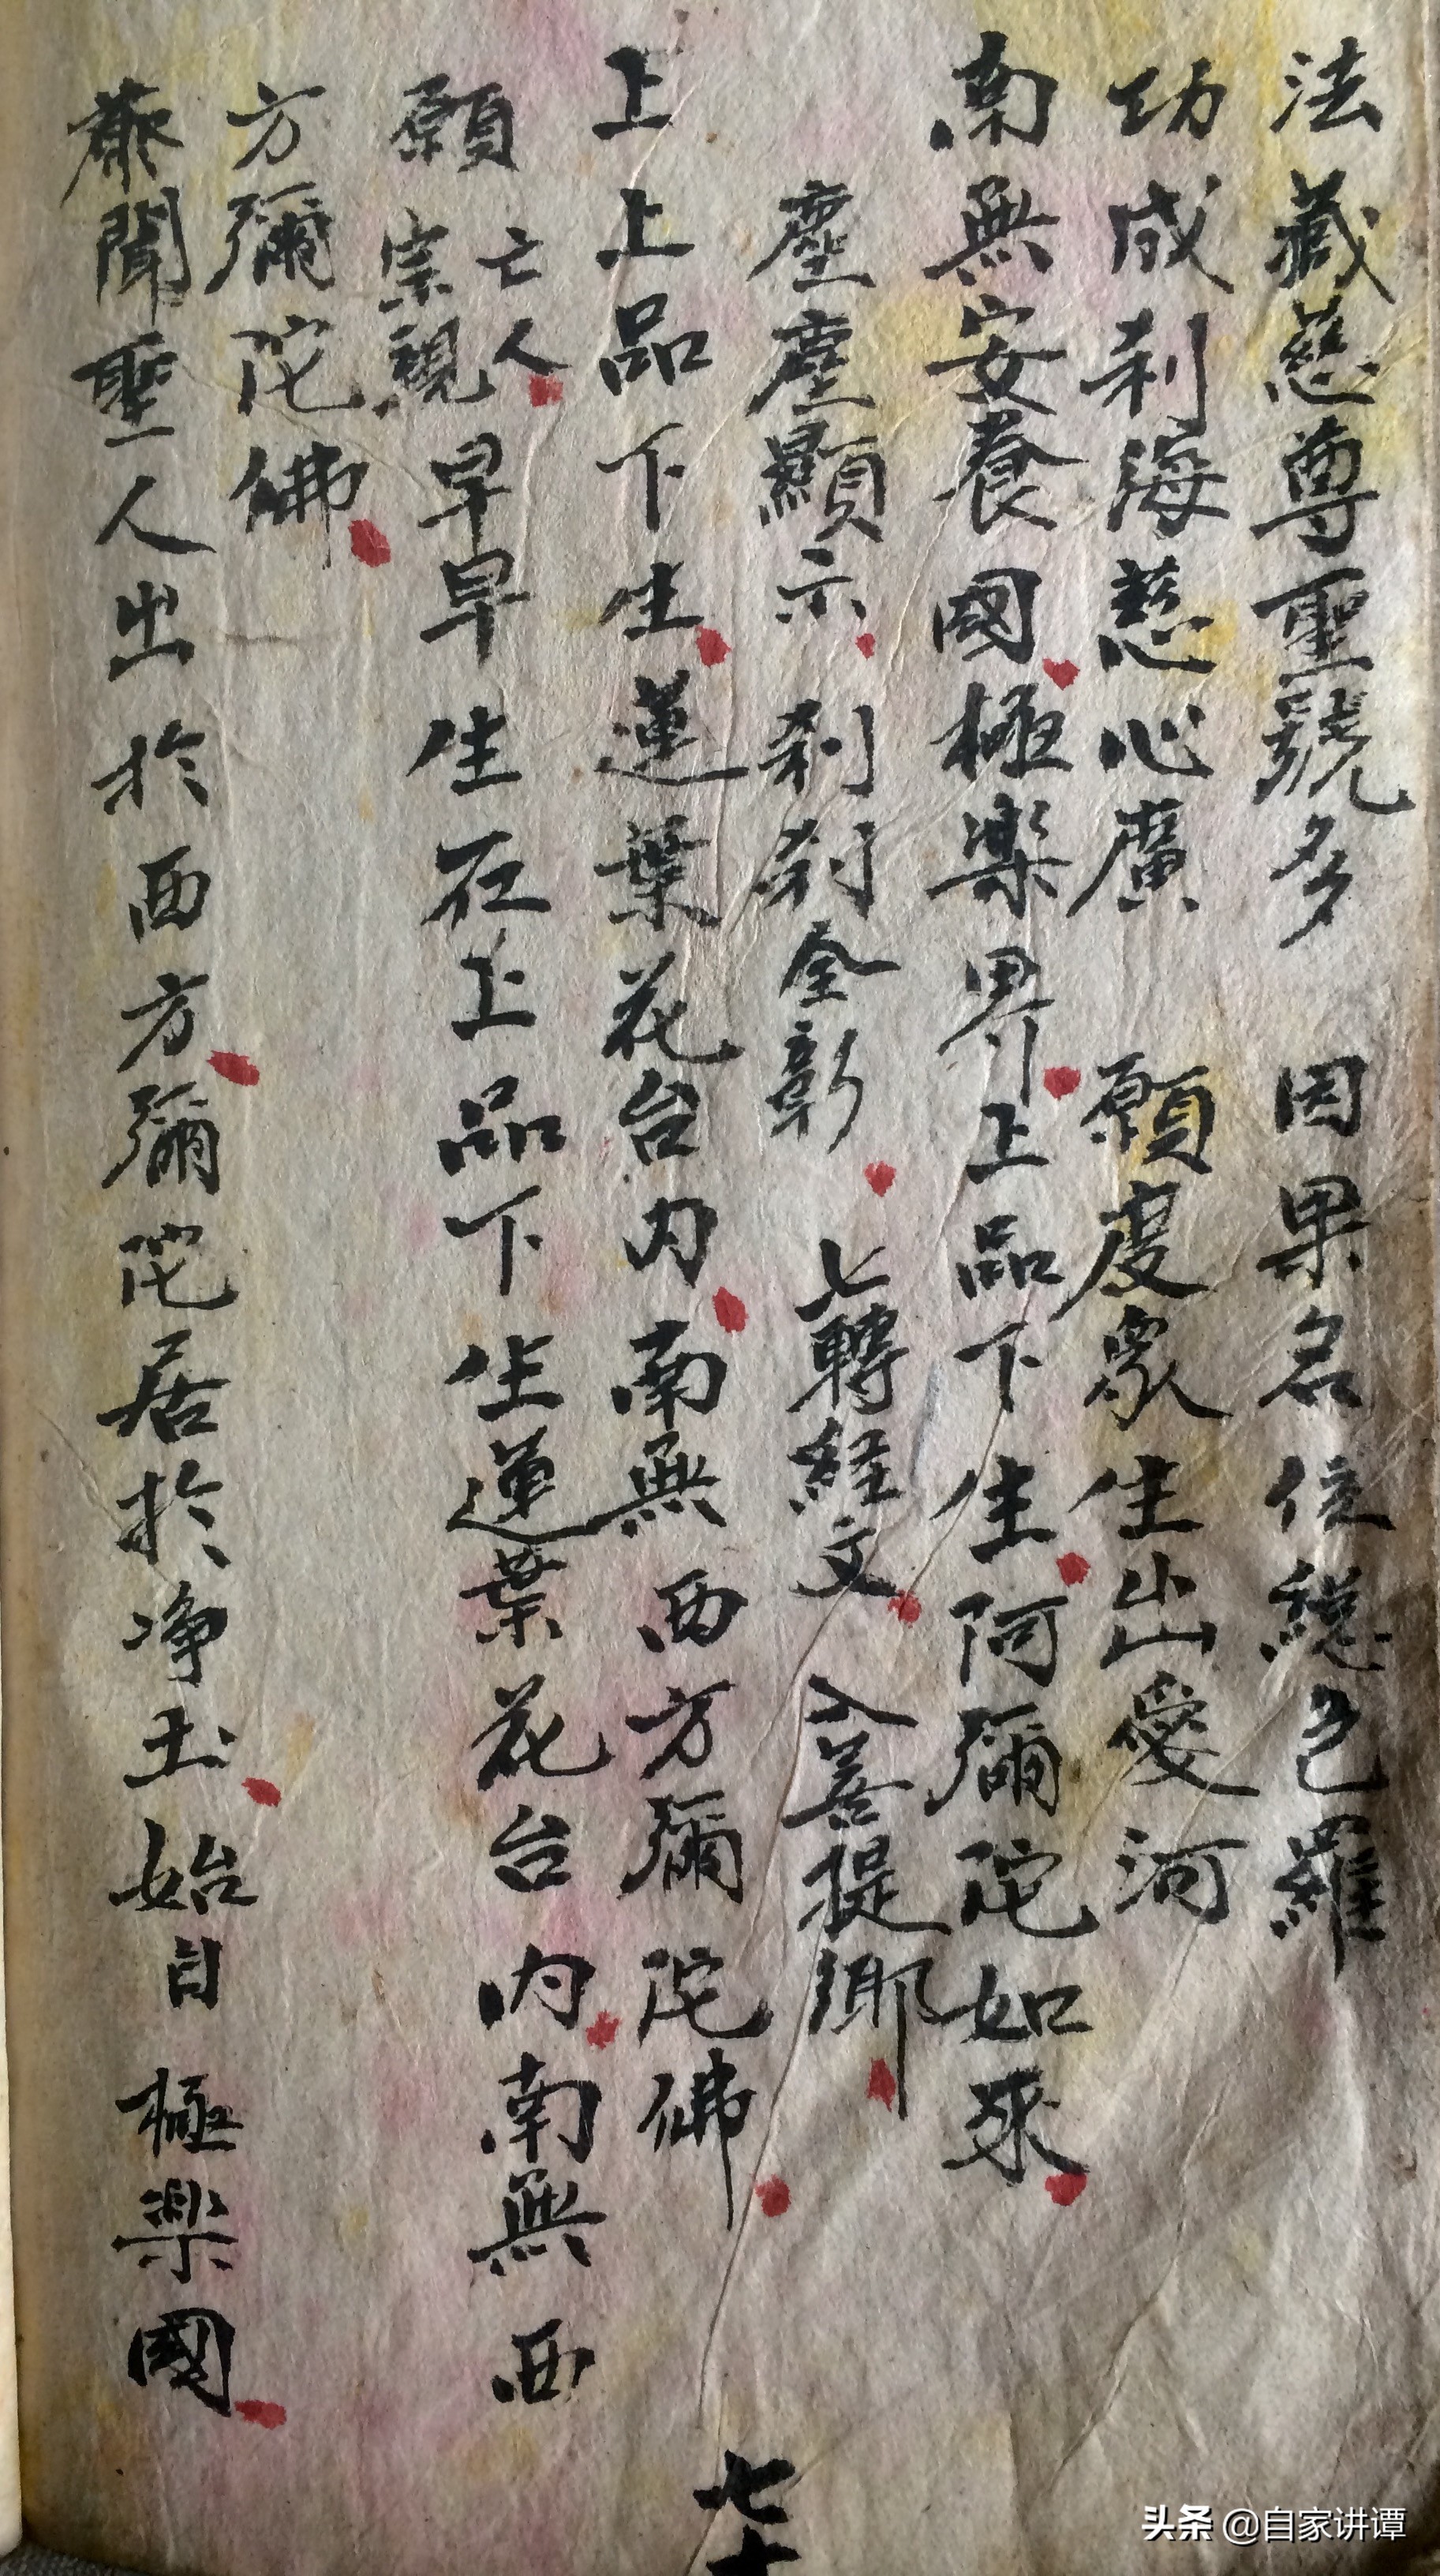 法藏慈尊聖號多 因果名位總包羅
功成刹海慈心廣 願度眾生出愛河
南無安養國極樂界上品下生阿彌陀如來
塵塵顯示刹刹全彰 七轉經文 入菩提鄉
上上品下生蓮葉花台内南無西方彌陀佛
願亡人宗親早早生在上品下生蓮葉花台内南無西
方彌陀佛
恭聞聖人出於西方彌陀居於净土始自極樂國
七十
头条 @自家讲谭